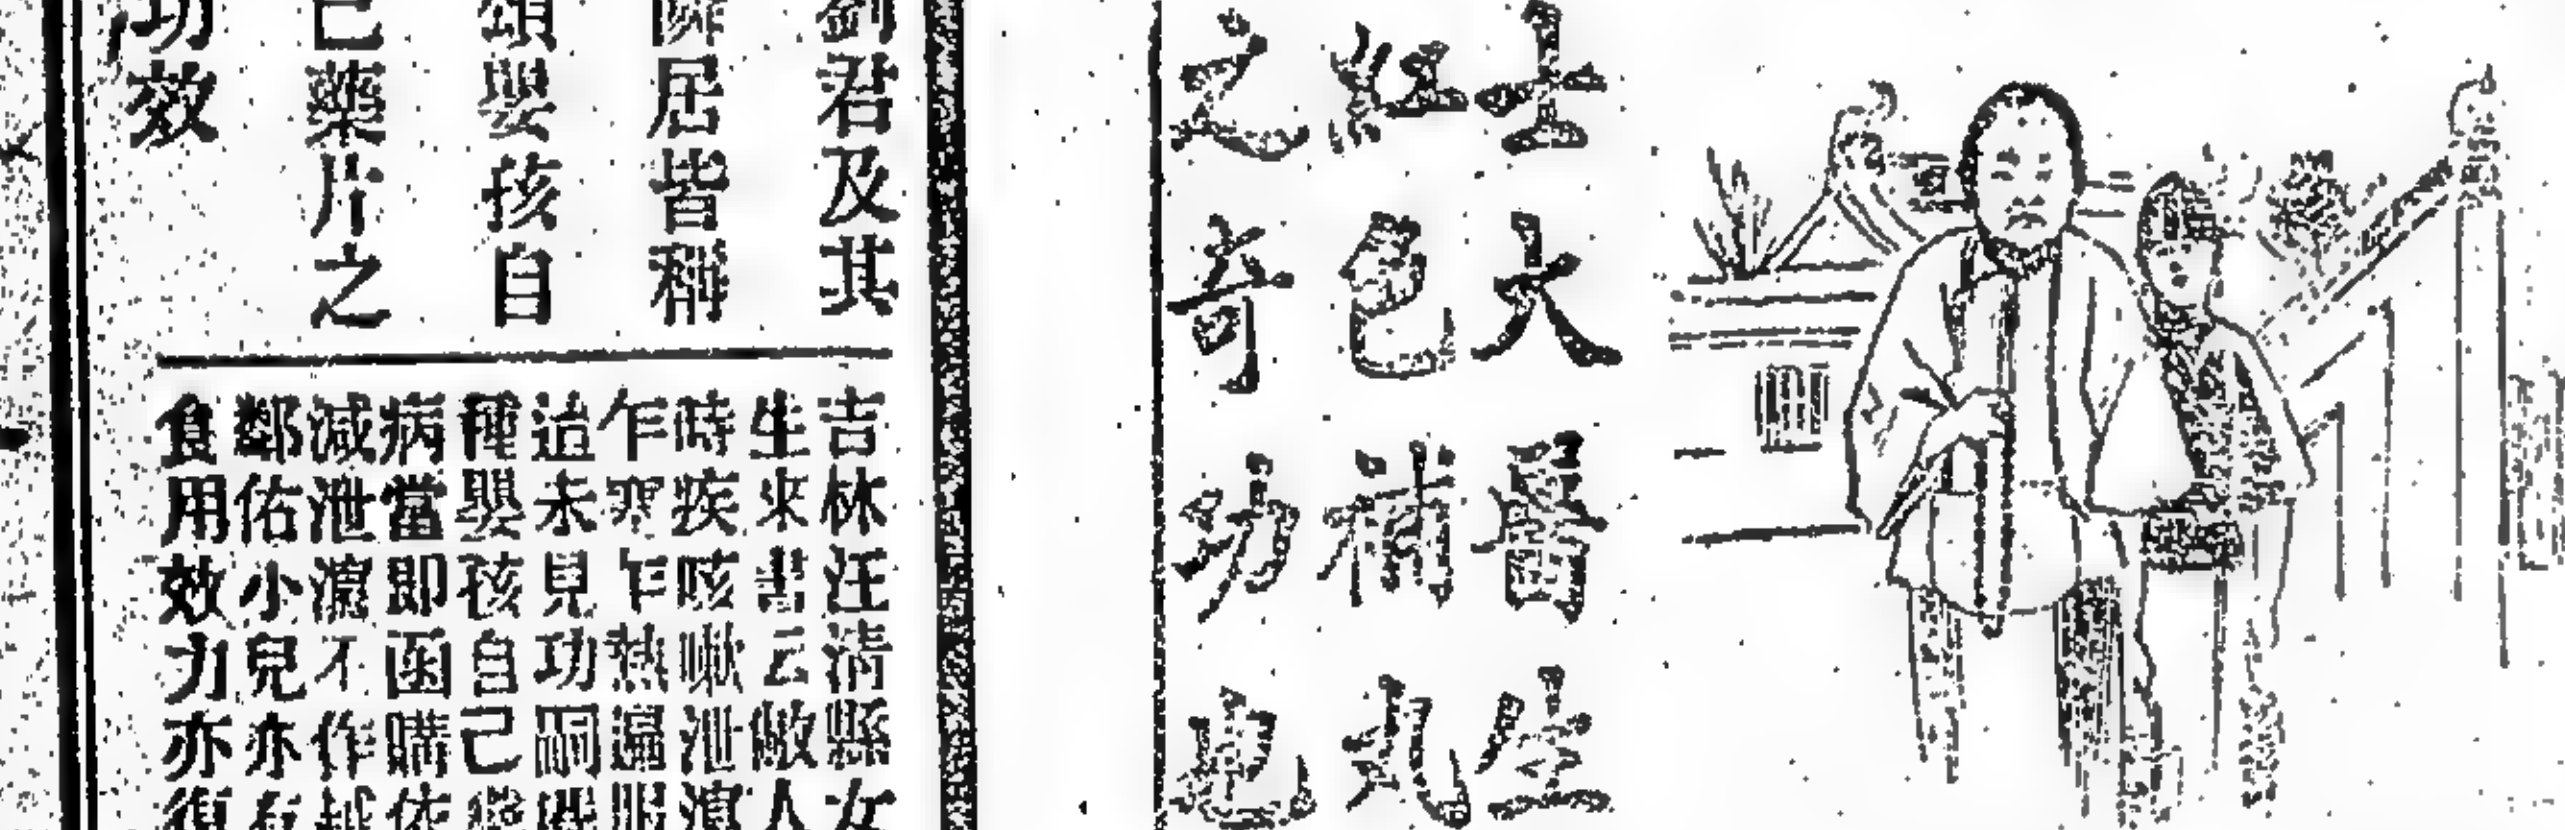 士大醫生
紅色補丸
之奇功也
劉君及其
隣居皆稱
頌嬰孩自
己藥片之
功效
吉林汪清縣
生來書云敝人
時疾咳嗽泄瀉
乍寒乍熱遍服
迨未見功嗣
種嬰孩自己
病當即函購依
減泄瀉不作
鄰佑小兒亦有
食用效力亦復